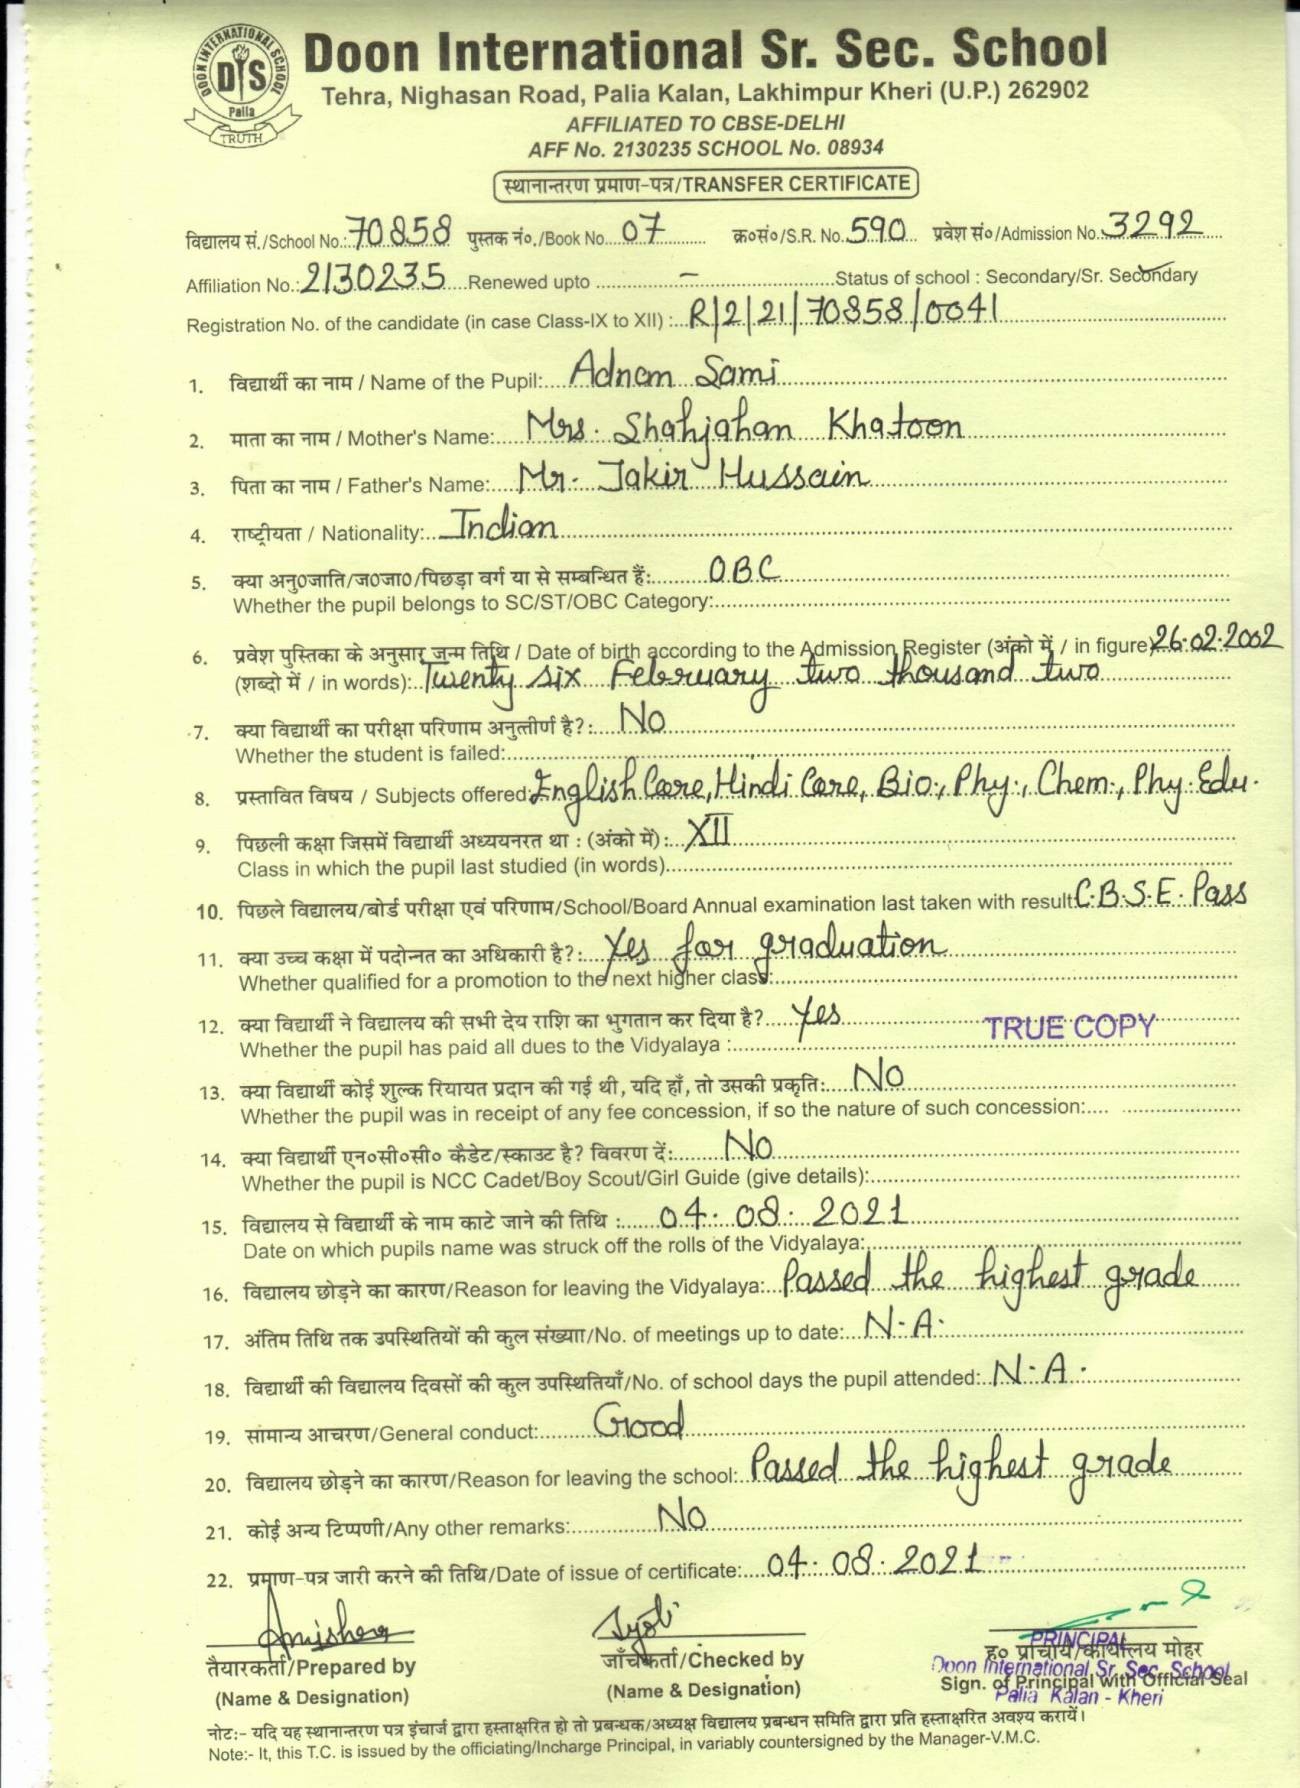 DOON INTERNATIONAL SCHOOL
DIS
Palia
TRUTH
Doon International Sr. Sec. School
Tehra, Nighasan Road, Palia Kalan, Lakhimpur Kheri (U.P.) 262902
AFFILIATED TO CBSE-DELHI
AFF No. 2130235 SCHOOL No. 08934
स्थानान्तरण प्रमाण-पत्र/TRANSFER CERTIFICATE
विद्यालय सं./School No.: 70858 पुस्तक नं०./Book No. 07 क्र०सं०/S.R. No. 590 प्रवेश सं०/Admission No. 3292
Affiliation No.: 2130235 Renewed upto – Status of school : Secondary/Sr. Secondary
Registration No. of the candidate (in case Class-IX to XII) : R/2/21/70858/0041
1. विद्यार्थी का नाम / Name of the Pupil: Adnan Sami
2. माता का नाम / Mother's Name: Mrs. Shahjahan Khatoon
3. पिता का नाम / Father's Name: Mr. Jakir Hussain
4. राष्ट्रीयता / Nationality: Indian
5. क्या अनु0जाति/ज0जा0/पिछड़ा वर्ग या से सम्बन्धित हैं: OBC
Whether the pupil belongs to SC/ST/OBC Category:
6. प्रवेश पुस्तिका के अनुसार जन्म तिथि / Date of birth according to the Admission Register (अंको में / in figure) 26.02.2002
(शब्दो में / in words): Twenty six February two thousand two
7. क्या विद्यार्थी का परीक्षा परिणाम अनुत्तीर्ण है?: No
Whether the student is failed:
8. प्रस्तावित विषय / Subjects offered: English Core, Hindi Core, Bio., Phy., Chem., Phy. Edu.
9. पिछली कक्षा जिसमें विद्यार्थी अध्ययनरत था : (अंको में) : XII
Class in which the pupil last studied (in words)
10. पिछले विद्यालय/बोर्ड परीक्षा एवं परिणाम/School/Board Annual examination last taken with result: C.B.S.E. Pass
11. क्या उच्च कक्षा में पदोन्नत का अधिकारी है?: Yes for graduation
Whether qualified for a promotion to the next higher class:
12. क्या विद्यार्थी ने विद्यालय की सभी देय राशि का भुगतान कर दिया है? Yes
TRUE COPY
Whether the pupil has paid all dues to the Vidyalaya :
13. क्या विद्यार्थी कोई शुल्क रियायत प्रदान की गई थी, यदि हाँ, तो उसकी प्रकृति: No
Whether the pupil was in receipt of any fee concession, if so the nature of such concession:
14. क्या विद्यार्थी एन०सी०सी० कैडेट/स्काउट है? विवरण दें: No
Whether the pupil is NCC Cadet/Boy Scout/Girl Guide (give details):
15. विद्यालय से विद्यार्थी के नाम काटे जाने की तिथि : 04.08.2021
Date on which pupils name was struck off the rolls of the Vidyalaya:
16. विद्यालय छोड़ने का कारण/Reason for leaving the Vidyalaya: Passed the highest grade
17. अंतिम तिथि तक उपस्थितियों की कुल संख्याा/No. of meetings up to date: N.A.
18. विद्यार्थी की विद्यालय दिवसों की कुल उपस्थितियाँ/No. of school days the pupil attended: N.A.
19. सामान्य आचरण/General conduct: Good
20. विद्यालय छोड़ने का कारण/Reason for leaving the school: Passed the highest grade
21. कोई अन्य टिप्पणी/Any other remarks: No
22. प्रमाण-पत्र जारी करने की तिथि/Date of issue of certificate: 04.08.2021
Jyoti
तैयारकर्ता/Prepared by
(Name & Designation)
जाँचकर्ता/Checked by
(Name & Designation)
PRINCIPAL
ह० प्राचार्य/कार्यालय मोहर
Doon International Sr. Sec. School
Sign. of Principal with Official Seal
Palia Kalan - Kheri
नोट:- यदि यह स्थानान्तरण पत्र इंचार्ज द्वारा हस्ताक्षरित हो तो प्रबन्धक/अध्यक्ष विद्यालय प्रबन्धन समिति द्वारा प्रति हस्ताक्षरित अवश्य करायें।
Note:- It, this T.C. is issued by the officiating/Incharge Principal, in variably countersigned by the Manager-V.M.C.